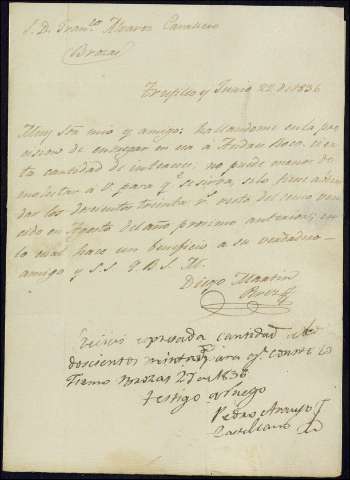 S. D. Franco. Alvarez Cavallero
Brozas
Trujillo y Junio 22 de 1836
Muy Sor. mio y amigo: hallandome en la pre
cision de entregar en esa á
cantidad de intereses, no puedo menos de
molestar á V. para qe. se sirva, si lo tiene á bien
dar los doscientos treinta rs. resto del censo ven
cido en Agosto del año proximo anterior; en
lo cual hace un beneficio a su verdadero
amigo y S. S. Q. B. S. M.
Diego Martin
Perez
Recivi espresada cantidad de
doscientos para qe. conste lo
firmo Brozas 27 de 1836
Testigo a Ruego
Pedro Araujo
Castellano